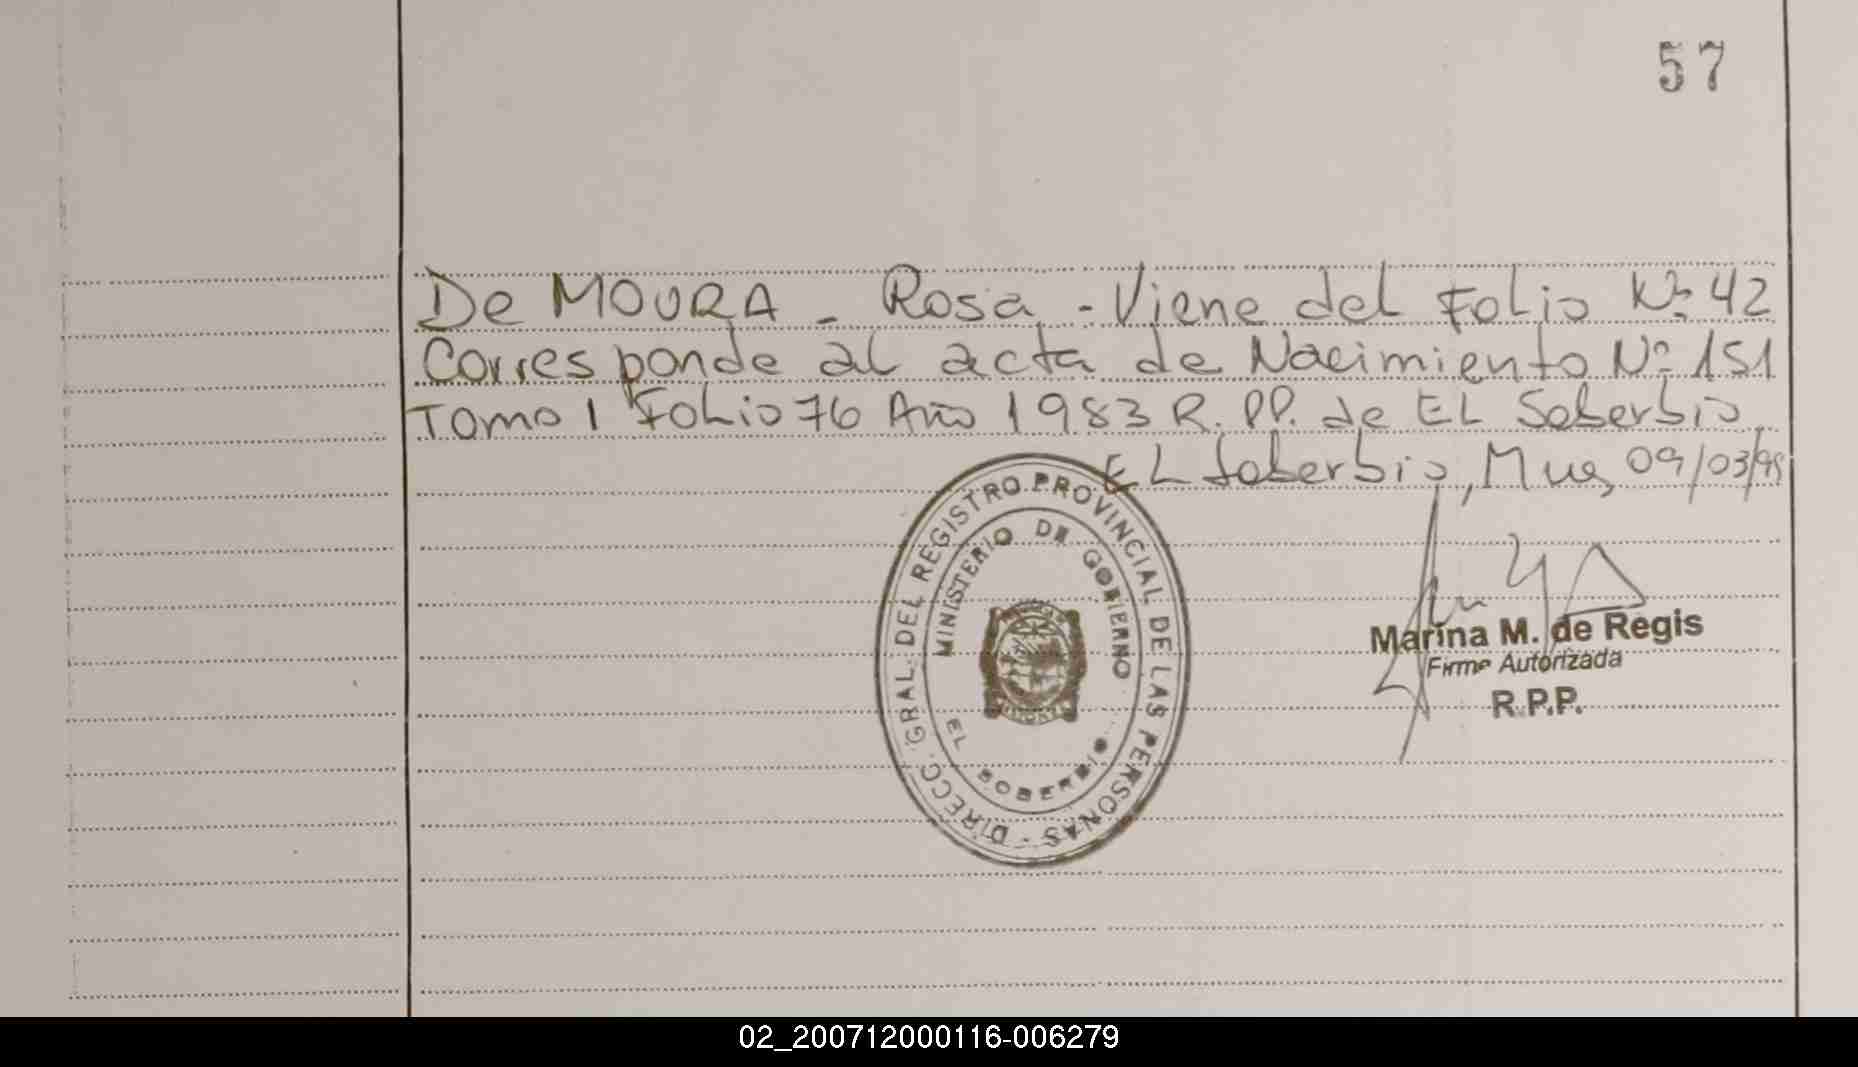 57
De MOURA - Rosa - Viene del Folio Nº 42
Corresponde al acta de Nacimiento Nº 151
Tomo 1 Folio 76 Año 1983 R. PP. de EL Soberbio
EL Soberbio, Mnes, 09/03/
DIRECC. GRAL. DEL REGISTRO PROVINCIAL DE LAS PERSONAS -
MINISTERIO DE GOBIERNO
EL SOBERBIO
Marina M. de Regis
Firma Autorizada
R.P.P.
02_200712000116-006279